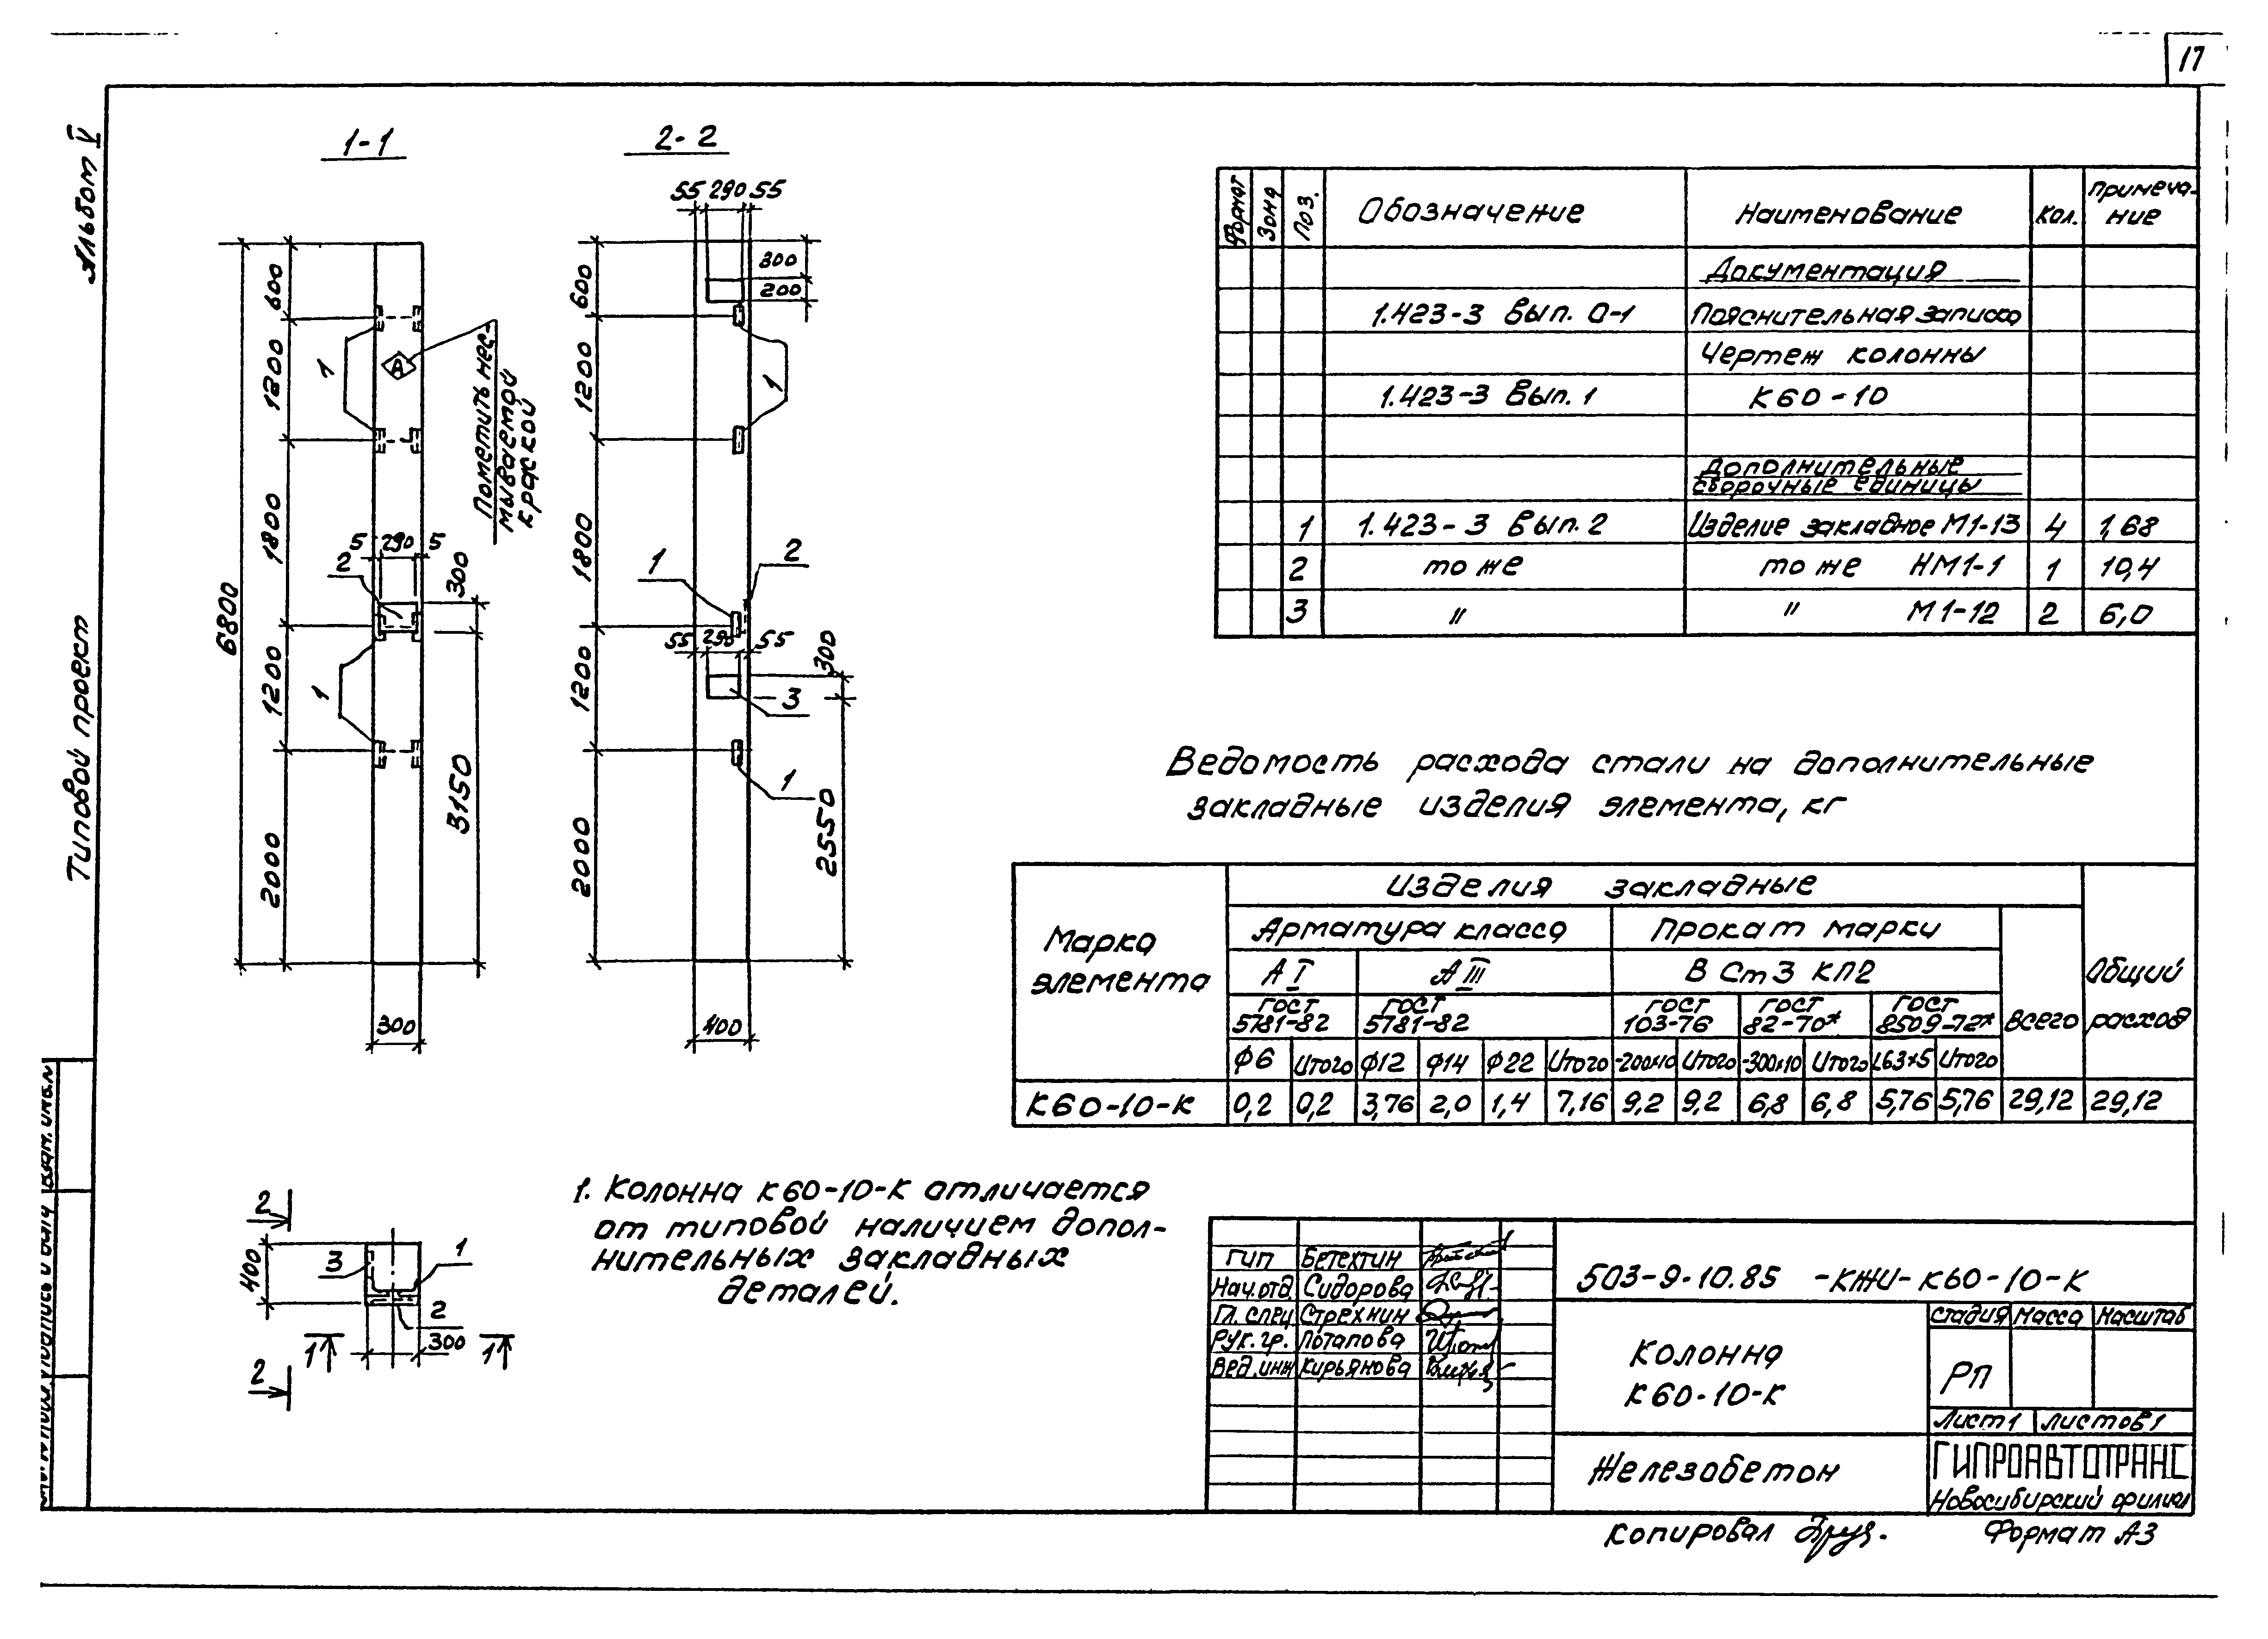 17
Альбом V
Типовой проект
1-1
2-2
55 290 55
600
1200
1800
1200
2000
6800
1
А
Пометить нес-
мываемой
краской
5 290 5
2
300
1
3150
300
600
1200
1800
1200
2000
300
200
1
1
2
55 290 55
300
3
1
2550
400
Формат Зона Поз. Обозначение Наименование Кол. Примеча-
ние
Документация
1.423-3 Вып. 0-1 Пояснительная записка
Чертеж колонны
1.423-3 Вып. 1 К60-10
Дополнительные
сборочные единицы
1 1.423-3 Вып. 2 Изделие закладное М1-13 4 1,68
2 то же то же НМ1-1 1 10,4
3 " " М1-12 2 6,0
Ведомость расхода стали на дополнительные
закладные изделия элемента, кг
Марка
элемента
Изделия закладные
Общий
расход
Арматура класса Прокат марки
Всего
А I А III В Ст 3 КП2
ГОСТ
5781-82
ГОСТ
5781-82
ГОСТ
103-76
ГОСТ
82-70*
ГОСТ
8509-72*
ф6 Итого ф12 ф14 ф22 Итого -200х10 Итого -300х10 Итого L63х5 Итого
К60-10-К 0,2 0,2 3,76 2,0 1,4 7,16 9,2 9,2 6,8 6,8 5,76 5,76 29,12 29,12
1. Колонна К60-10-К отличается
от типовой наличием допол-
нительных закладных
деталей.
2
400
3
1
2
300
1 1
2
Взам. инв.№
Подпись и дата
ГИП Бетехтин
Нач.отд. Сидорова
Гл. спец Стрехнин
Рук. гр. Потапова
Вед.инж Кирьянова
503-9-10.85 -КЖИ-К60-10-К
Колонна
К60-10-К
Стадия Масса Масштаб
РП
Лист 1 Листов 1
Железобетон
ГИПРОАВТОТРАНС
Новосибирский филиал
Копировал
Формат А3